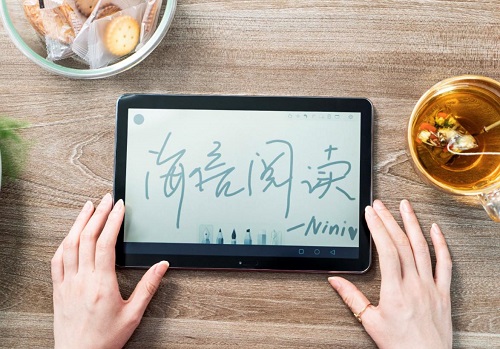 海信阅读
—Nini♥